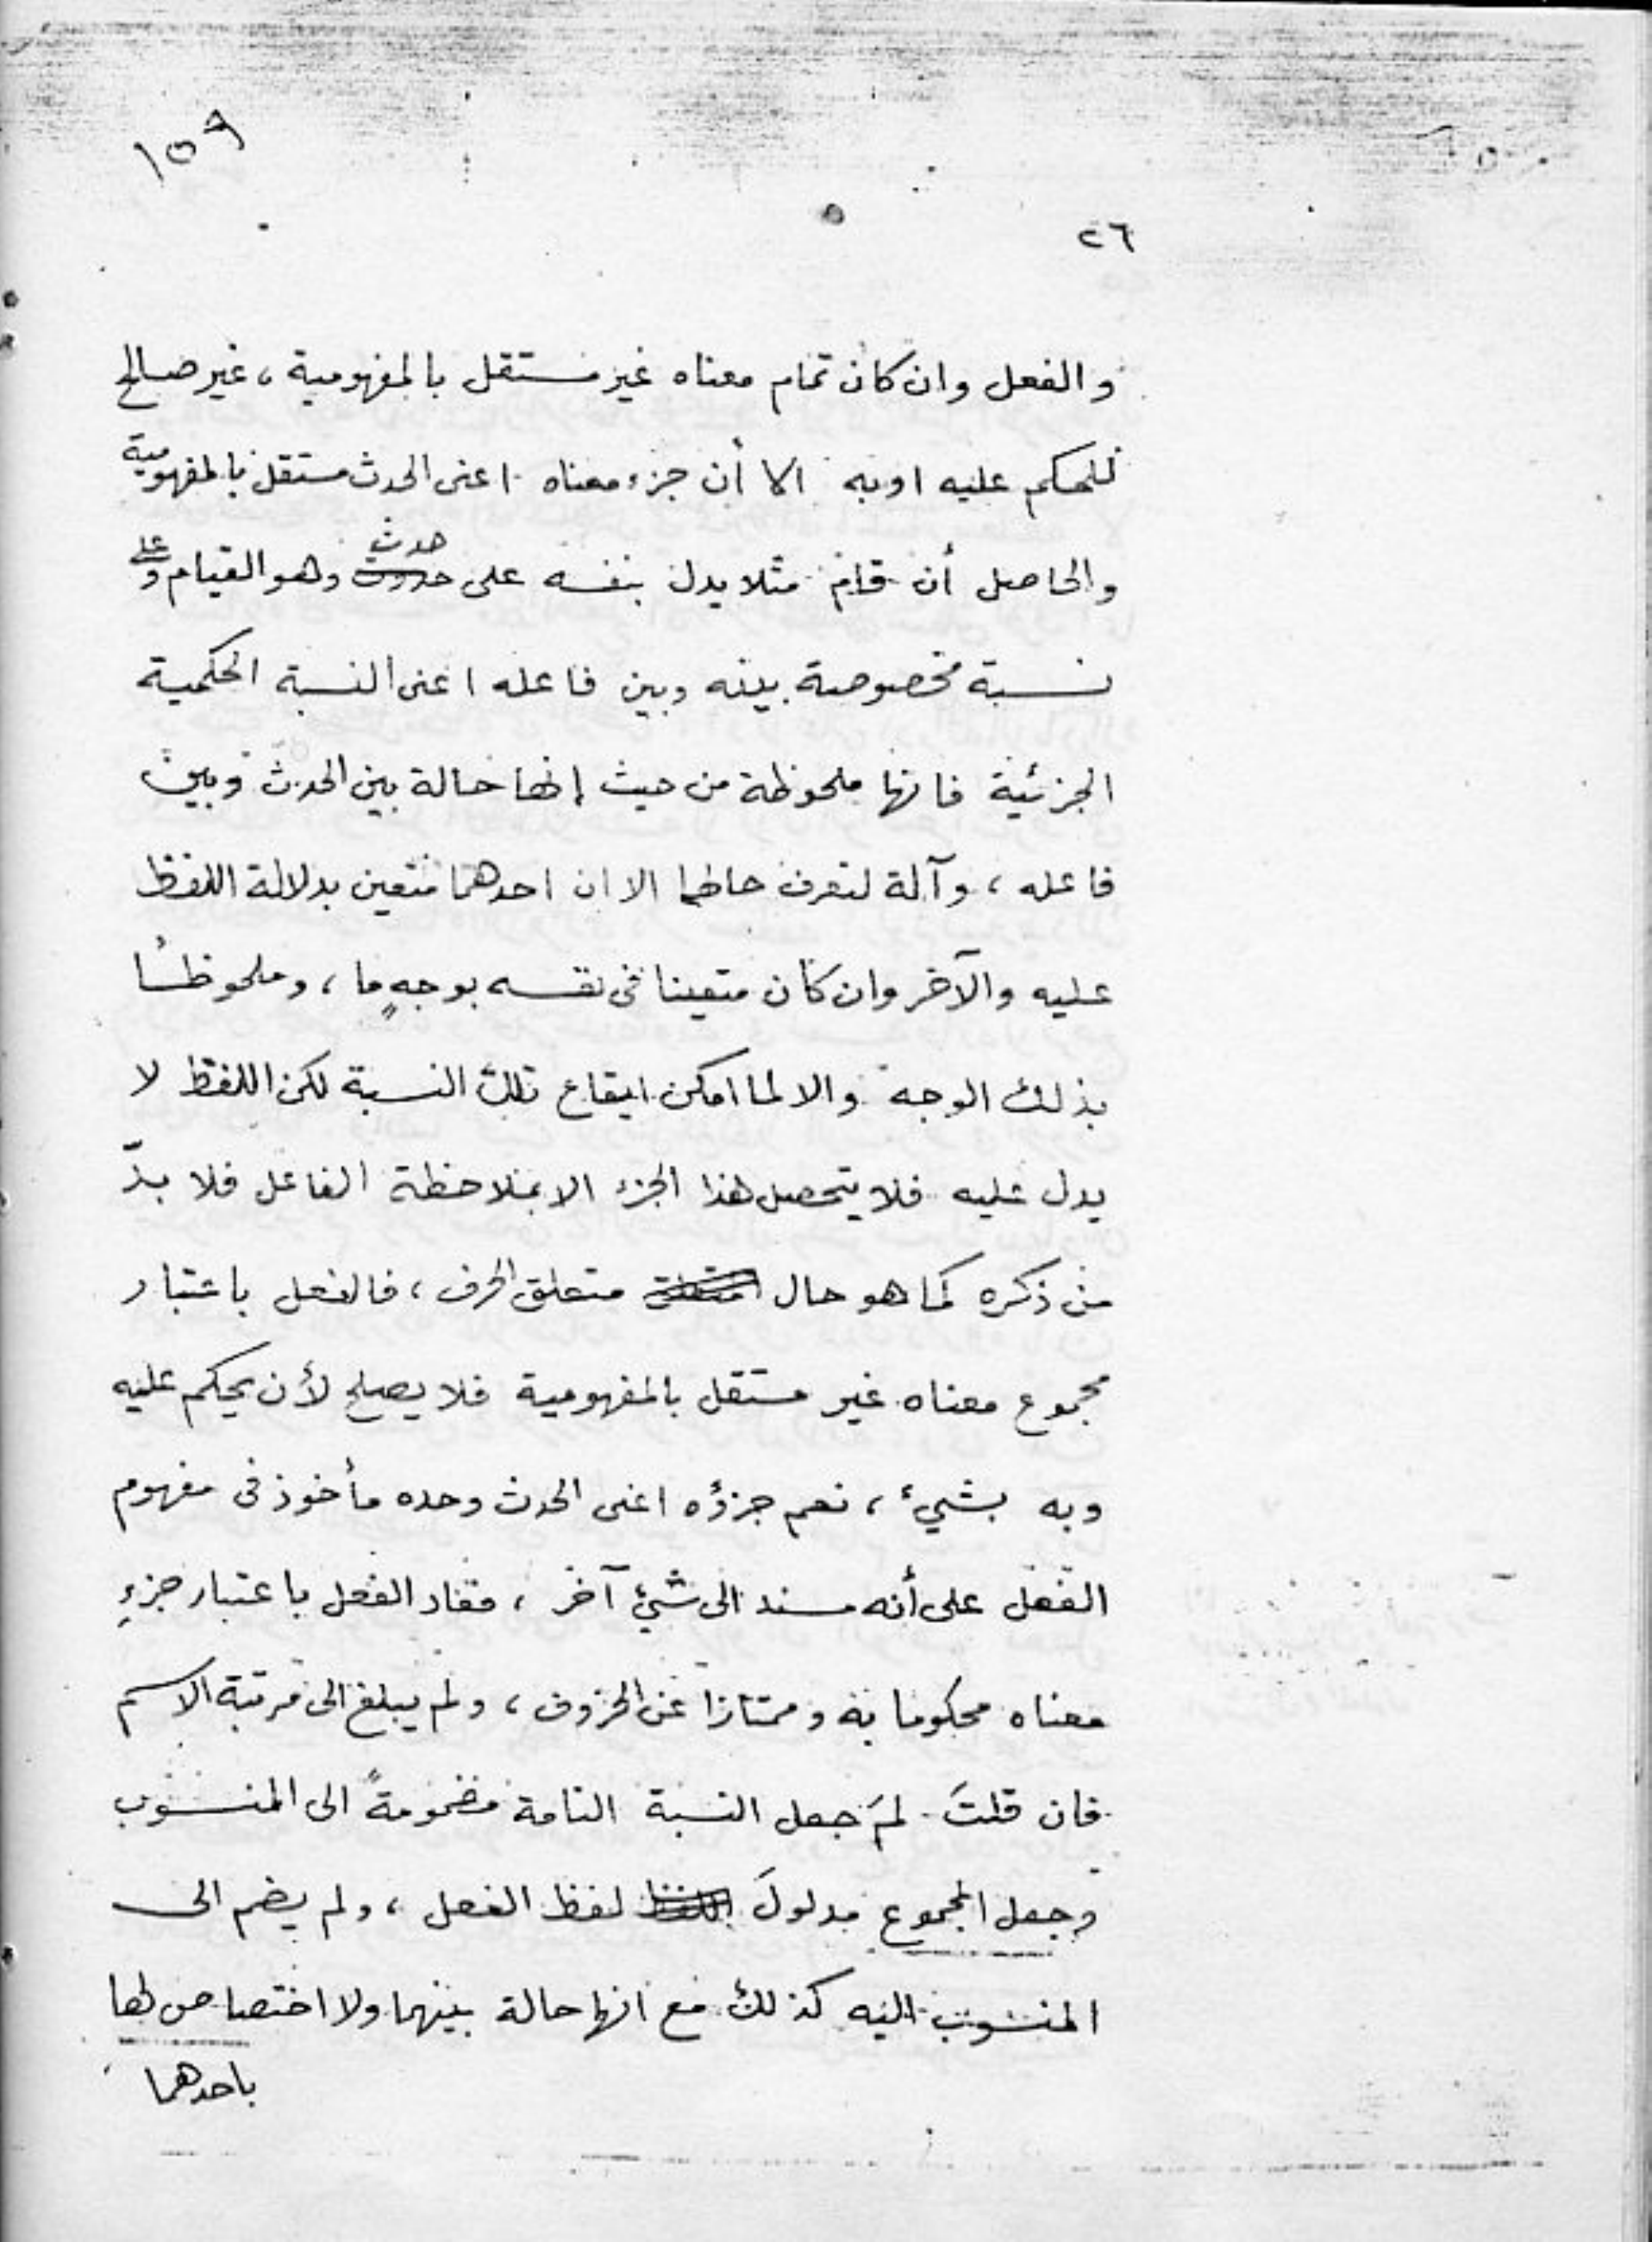 ١٥٩
٢٦
والفعل وان كان تمام معناه غير مستقل بالمفهومية ، غير صالح
للحكم عليه او به الا أن جزء معناه اعنى الحدث مستقل بالمفهومية
والحاصل أن قام مثلا يدل بنفسه على حدث وهو القيام وعلى
نسبة مخصوصة بينه وبين فاعله اعنى النسبة الحكمية
الجزئية فانها ملحوظة من حيث إنها حالة بين الحدث وبين
فاعله ، وآلة لتعرف حالهما الا ان احدهما متعين بدلالة اللفظ
عليه والآخر وان كان متعينا فى نفسه بوجهٍ ما ، وملحوظًا
بذلك الوجه والا لما امكن ايقاع تلك النسبة لكن اللفظ لا
يدل عليه فلا يتحصل هذا الجزء الا بملاحظة الفاعل فلا بدّ
من ذكره كما هو حال متعلق الحرف ، فالفعل باعتبار
مجموع معناه غير مستقل بالمفهومية فلا يصلح لأن يحكم عليه
وبه بشيء ، نعم جزؤه اعنى الحدث وحده مأخوذ فى مفهوم
الفعل على أنه مسند الى شئ آخر ، فعاد الفعل باعتبار جزءِ
معناه محكوما به وممتازا عن الحروف ، ولم يبلغ الى مرتبة الاسم
فان قلتَ لمَ جعل النسبة التامة مضمومةً الى المنسوب
وجعل المجموع مدلولَ لفظ الفعل ، ولم يضم الى
المنسوب اليه كذلك مع انها حالة بينهما ولا اختصاص لها
باحدهما